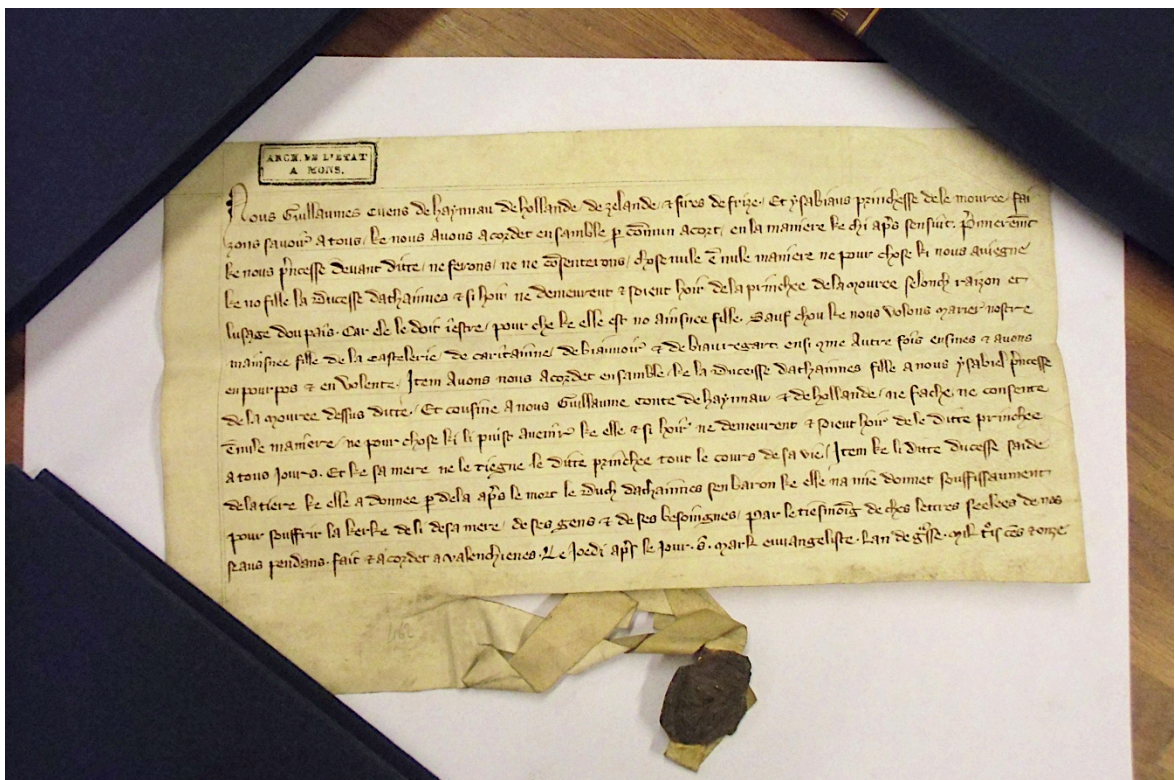 ARCH. DE L'ETAT
A MONS.
Nous Guillaumes cuens de haynnau de hollande de zelande & sires de frize. Et ysabiaus princhesse dele mouree fai
zons savoir a tous, ke nous avons acordet ensamble p comun acort, en la maniere ke chi aps sensuit. Pmieremt
ke nous pncesse devant ditte, ne ferons, ne ne cosenterons, chose nule e nule maniere ne pour chose ki nous aviegne
ke no fille la Ducesse dathainnes & si hoir ne demeurent & soient hoir de la princhee de la mouree selonch raizon et
lusage dou pais. Car ele le doit iestre, pour che ke elle est no ainsnee fille. Sauf chou ke nous volons marier nostre
mainsnee fille de la castelerie, de caritainne, de biaumoir & de biauregart, ensi qme autre fois en fimes & avons
en pourpos & en volente. Item Avons nous acordet ensamble, ke la Ducesse dathainnes fille a nous ysabiel pncesse
de la mouree dessus ditte. Et cousine a nous Guillaume conte de haynnau & de hollande, ne fache, ne consente
e nule maniere, ne pour chose ki li puist avenir ke elle & si hoir ne demeurent & soient hoir de le ditte princhee
a tous jours. Et ke sa mere ne le tiegne le ditte princhee tout le cours de sa vie. Item ke li ditte ducesse saide
de la tiere ke elle a donnee p dela aps le mort le Duch dathainnes sen baron ke elle na mie donnet souffissaument
pour souffrir la kerke de li de sa mere, de ses gens & de ses besoingnes, Par le tiesmoig de ches lettres seelees de nos
seaus pendans. fait & acordet a valenchienes. Le Joedi aps le jour .S. mark euvangeliste. lan de gsse. mil tis ces & onze